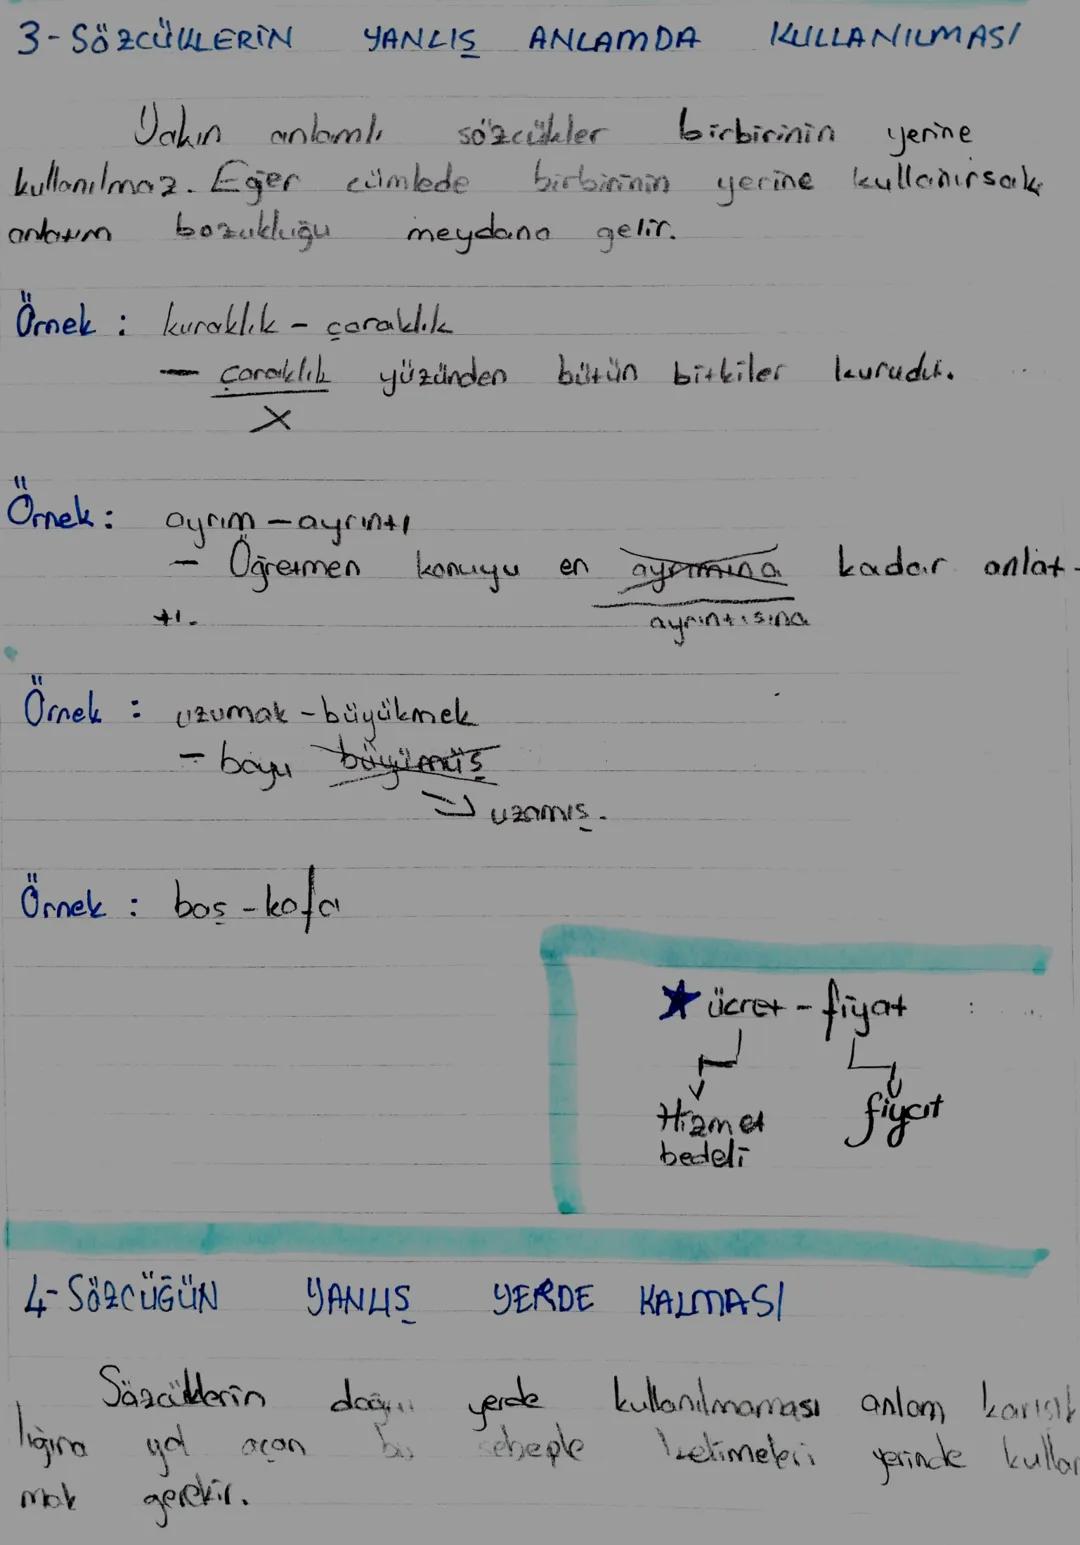 3-SÖZCÜKLERİN YANLIŞ ANLAMDA KULLANILMASI
Yakın anlamlı sözcükler birbirinin yerine
kullanılmaz. Eğer cümlede birbirinin yerine kullanırsak
anlatım bozukluğu meydana gelir.
Örnek : kuraklık - çoraklık
- çoraklık yüzünden bütün bitkiler kurudu.
X
Örnek : ayrım - ayrıntı
- Öğretmen konuyu en ayrımına kadar anlat-
tı.
ayrıntısına
Örnek : uzumak - büyükmek
- boyu büyümüş
uzamış.
Örnek : baş - kafa
★ ücret - fiyat :
Hizmet fiyat
bedeli
4-SÖZCÜĞÜN YANLIŞ YERDE KALMASI
Sözcüklerin doğru yerde kullanılmaması anlam karışık
lığına yol açan bu sebeple kelimeleri yerinde kullan
mak gerekir.